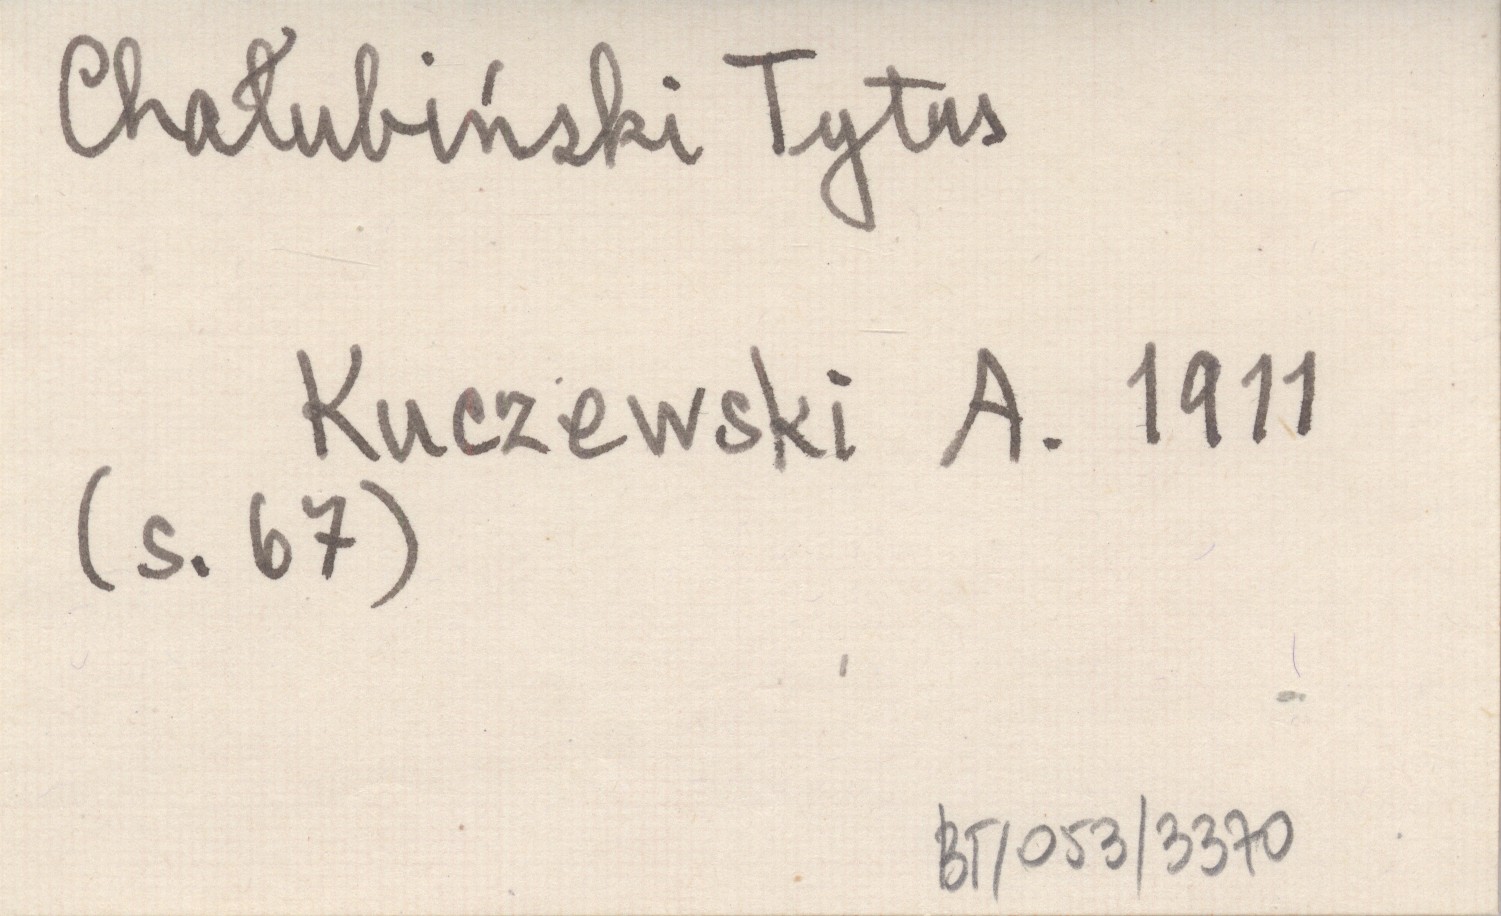 Chałubiński Tytus
Kuczewski A. 1911
(s. 67)
BT/053/3370